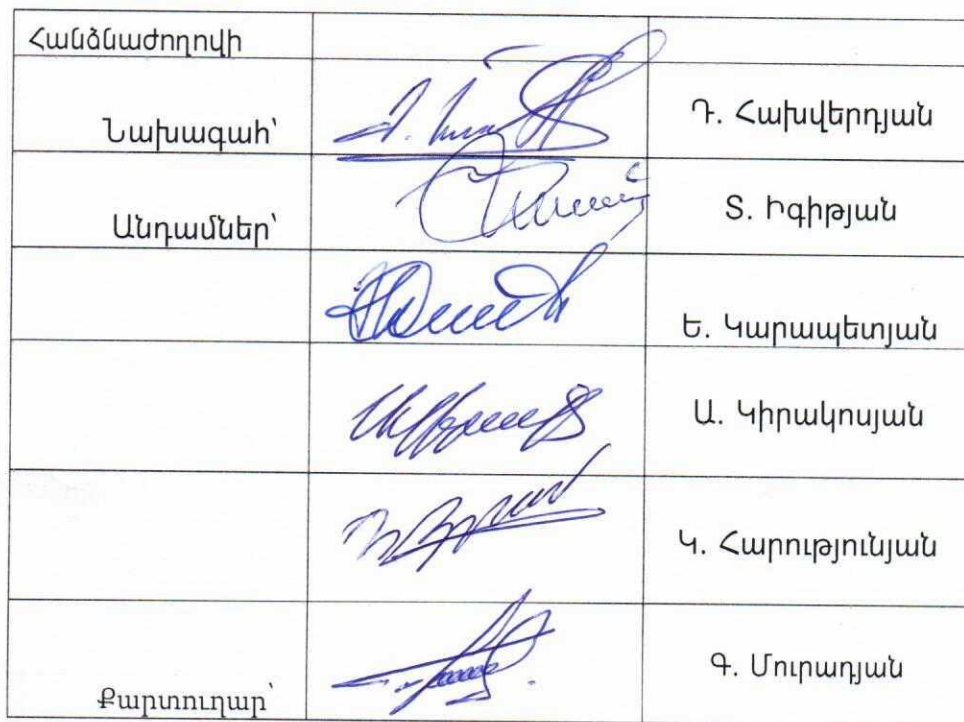 Հանձնաժողովի
Նախագահ՝ Դ. Հախվերդյան
Անդամներ՝ Տ. Իգիթյան
Ե. Կարապետյան
Ա. Կիրակոսյան
Կ. Հարությունյան
Քարտուղար՝ Գ. Մուրադյան